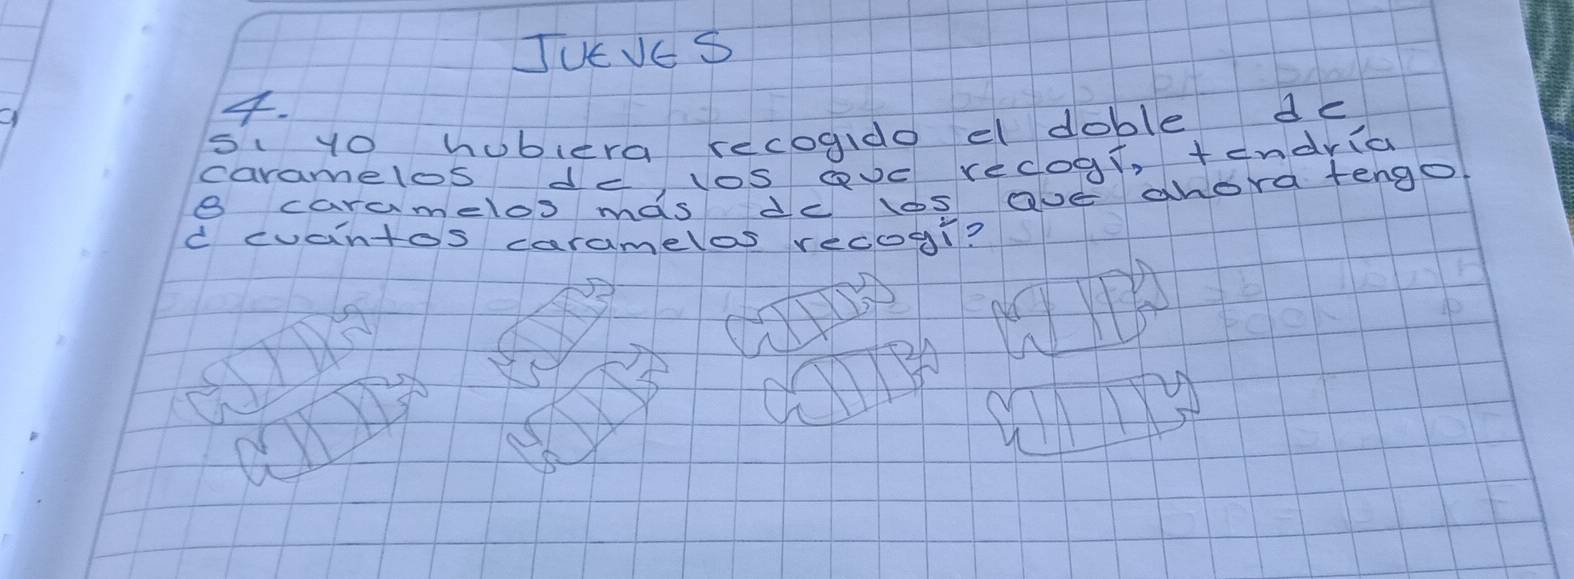 JUEVES
4.
Si yo hubiera recogido el doble de
caramelos de los que recogí, tendría
8 caramelos más de los que ahora tengo.
¿ cuántos caramelos recogí?